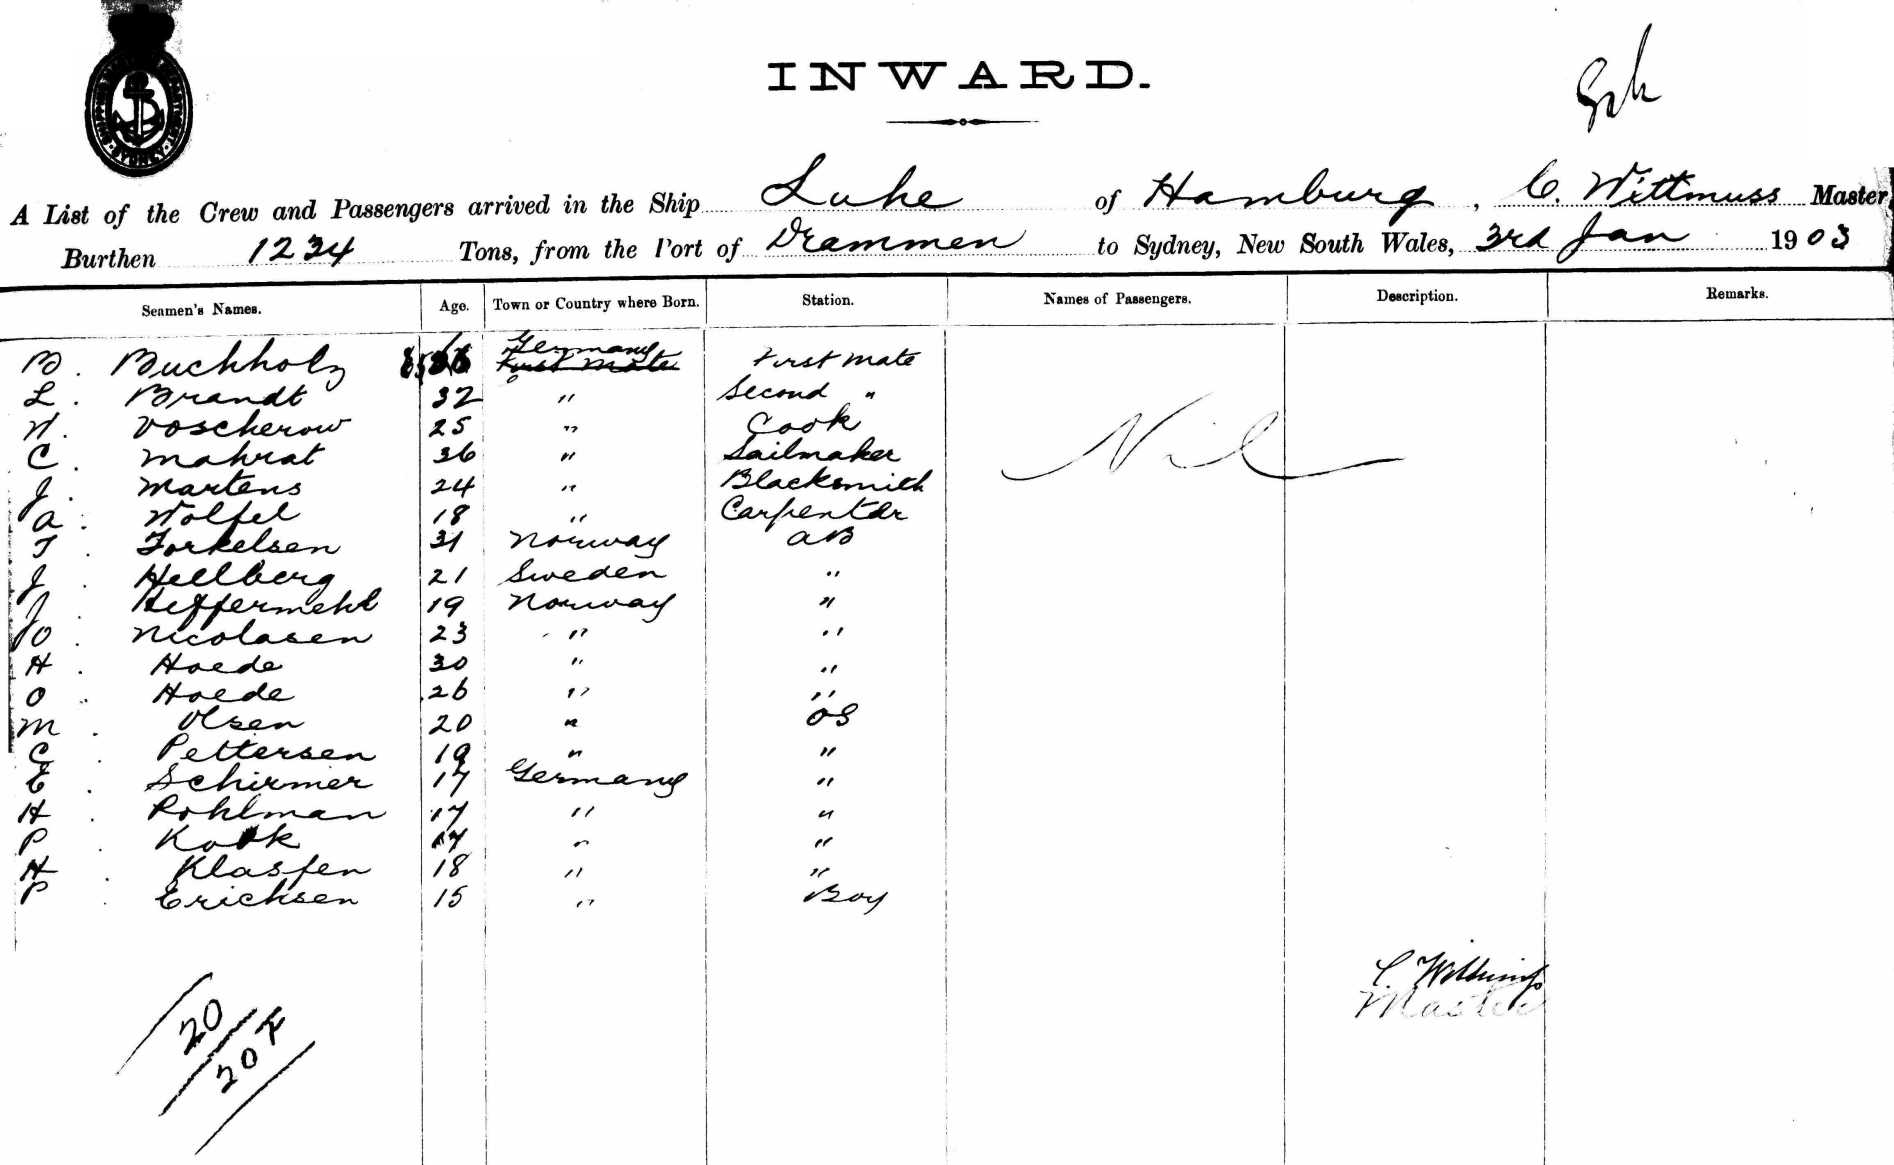 SYDNEY
INWARD.
A List of the Crew and Passengers arrived in the Ship Luhe of Hamburg, C. Wittmuss Master
Burthen 1234 Tons, from the Port of Drammen to Sydney, New South Wales, 3rd Jan 1903
Seamen's Names. Age. Town or Country where Born. Station. Names of Passengers. Description. Remarks.
B. Buchholz Germany First Mate First mate
L. Brandt 32 " Second "
W. Voscherow 25 " Cook
C. Mahrat 36 " Sailmaker
J. Martens 24 " Blacksmith
A. Wolfel 18 " Carpenter
T. Torkelsen 31 Norway AB
J. Hellberg 21 Sweden "
J. Heffermehl 19 Norway "
O. Nicolasen 23 " "
H. Hoede 30 " "
O. Hoede 26 " "
M. Olsen 20 " OS
C. Pettersen 19 " "
E. Schirmer 17 Germany "
H. Pohlman 17 " "
P. 17 " "
H. Klasfen 18 " "
P. Erichsen 15 " Boy
Nil
C. Wittmuss
Master
20
20